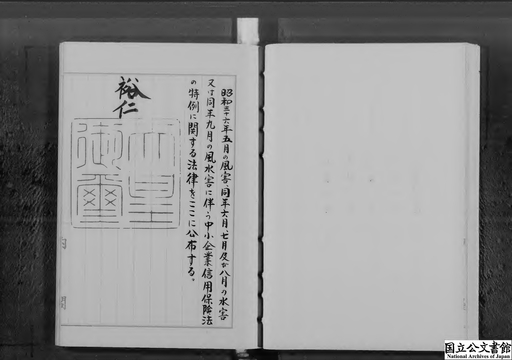 昭和三十六年五月の風害、同年六月、七月及び八月の水害
又は同年九月の風水害に伴う中小企業信用保険法
の特例に関する法律をここに公布する。
裕仁
天皇
御璽
国立公文書館
National Archives of Japan